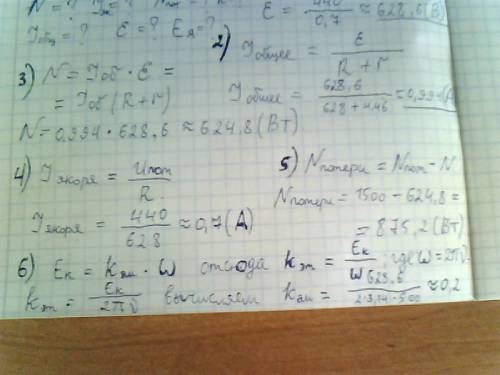 N = ?
I общ = ? E = ? Eя = ?
E = 440 / 0,7 ≈ 628,6 (В)
2) I общее = E / (R + r)
3) N = Iоб · E =
= Iоб (R + r)
I общее = 628,6 / (628 + 4,46) ≈ 0,994 (А)
N = 0,994 · 628,6 ≈ 624,8 (Вт)
4) I якоря = Uпот / R
I якоря = 440 / 628 ≈ 0,7 (А)
5) N потери = Nпот - N
N потери = 1500 - 624,8 =
= 875,2 (Вт)
6) Eк = kэм · ω отсюда kэм = Eк / ω ; где ω = 2πν
kэм = Eк / 2πν вычисляем kэм = 628,6 / 2·3,14·500 ≈ 0,2